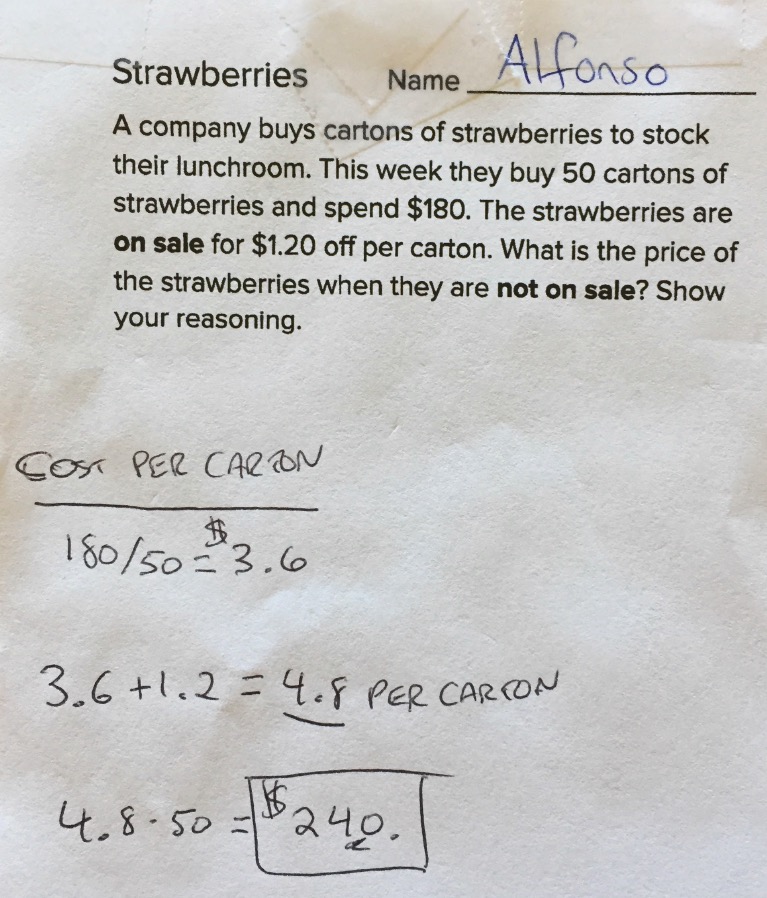 Strawberries Name Alfonso
A company buys cartons of strawberries to stock
their lunchroom. This week they buy 50 cartons of
strawberries and spend $180. The strawberries are
on sale for $1.20 off per carton. What is the price of
the strawberries when they are not on sale? Show
your reasoning.
COST PER CARTON
180/50 = $3.6
3.6 + 1.2 = 4.8 PER CARTON
4.8 · 50 = $240.